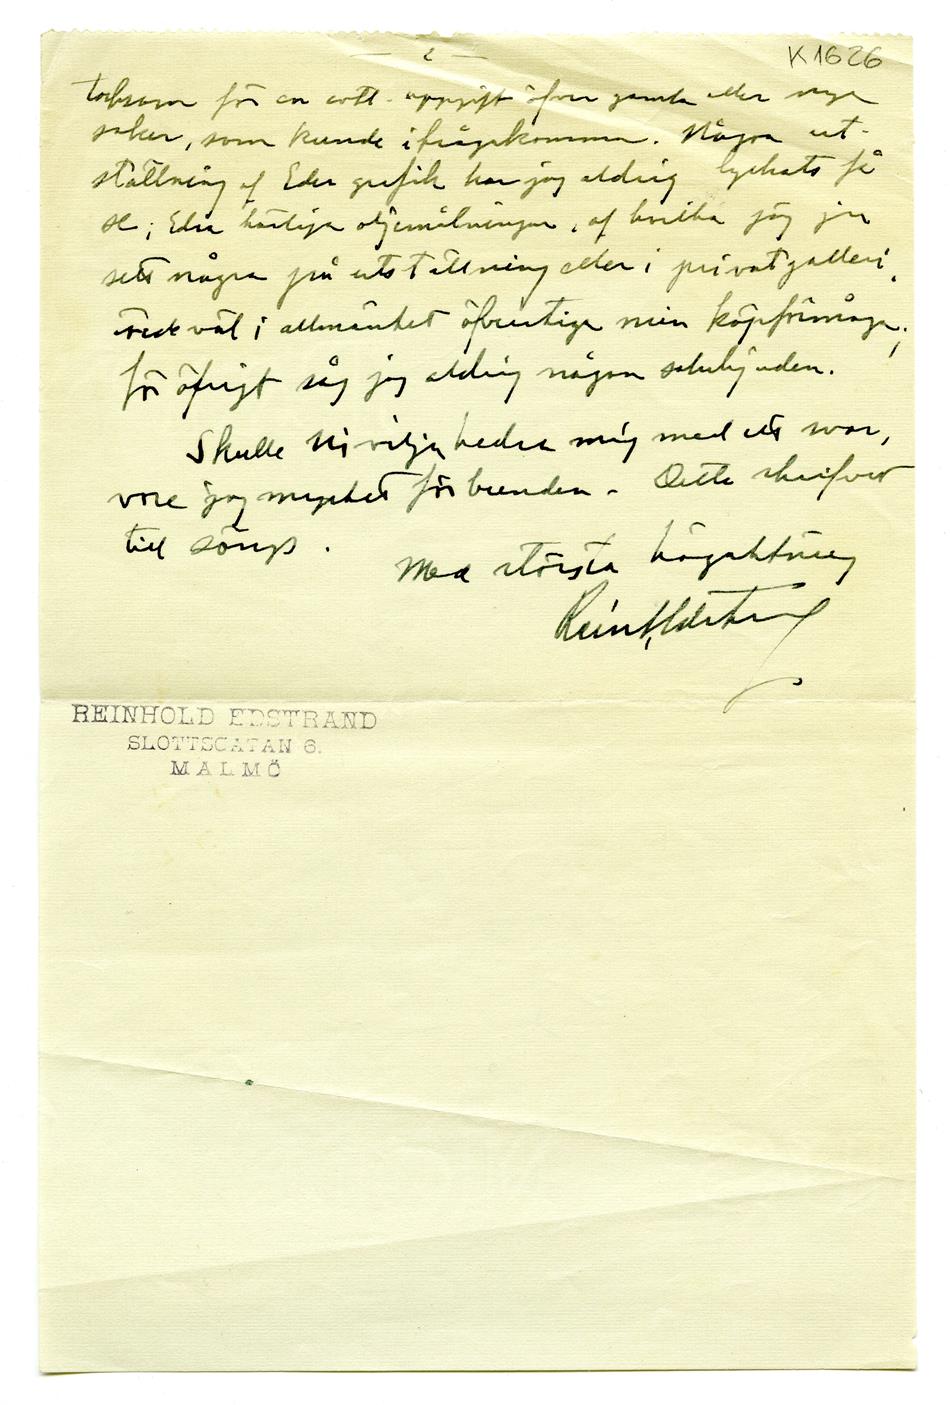 — 2 —
K 1626
tacksam för en ev. uppgift öfver gamla eller nya
saker, som kunde ifrågakomma. Någon ut-
ställning af Eder grafik har jag aldrig lyckats få
se; Edra härliga oljemålningar, af hvilka jag ju
sett några på utställning eller i privatgalleri,
väl i allmänhet öfverstiga min köpförmåga;
för öfrigt såg jag aldrig någon salubjuden.
Skulle Ni vilja hedra mig med ett svar,
vore jag mycket förbunden. Detta skrifvet
till sängs.
Med största högaktning
Reinh. Edstrand
REINHOLD EDSTRAND
SLOTTSGATAN 6.
MALMÖ